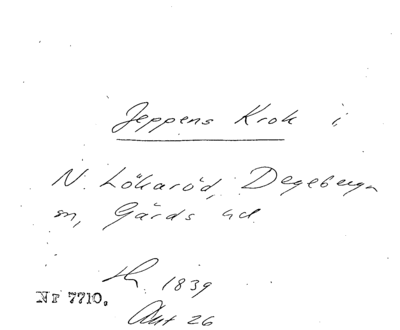 Jeppens Krok i
N. Lökaröd, Degeberga
sn, Gärds hd.
1839
Nr 7710.
Akt 26